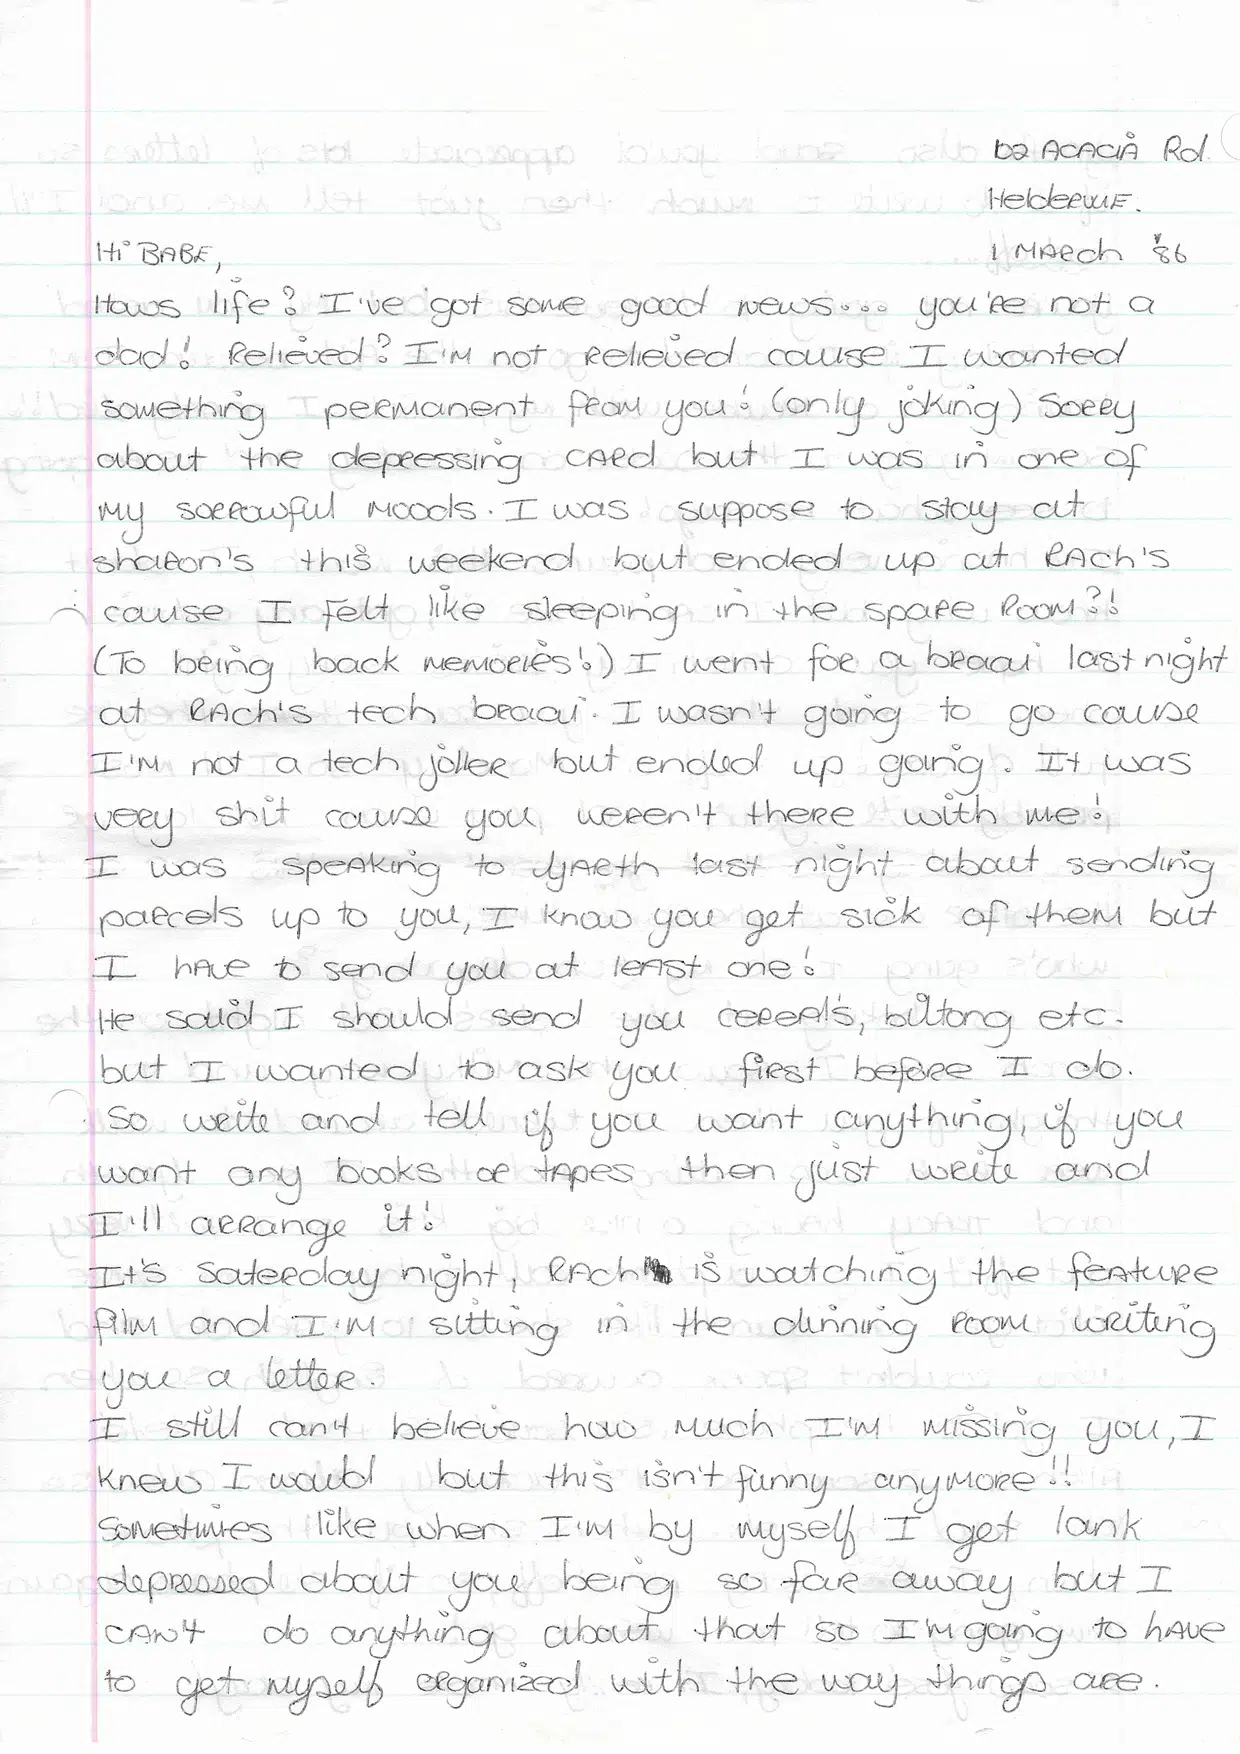 102 ACACIA Rd.
HelderVUE.
1 MARch '86
Hi BABE,
Hows life? I've got some good news... you're not a
dad! Relieved? I'm not relieved cause I wanted
something permanent from you! (only joking) Sorry
about the depressing card but I was in one of
my sorrowful moods. I was suppose to stay at
sharon's this weekend but ended up at RAch's
cause I felt like sleeping in the spare room?!
(To being back memories!) I went for a braai last night
at RAch's tech braai. I wasn't going to go cause
I'm not a tech joller but ended up going. It was
very shit cause you weren't there with me!
I was speaking to GARth last night about sending
parcels up to you, I know you get sick of them but
I have to send you at least one!
He said I should send you cereals, biltong etc.
but I wanted to ask you first before I do.
So write and tell if you want anything, if you
want any books or tapes then just write and
I'll arrange it!
It's Saterday night, RAch is watching the feature
film and I'm sitting in the dinning room writing
you a letter.
I still can't believe how much I'm missing you, I
knew I would but this isn't funny anymore!!
Sometimes like when I'm by myself I get lank
depressed about you being so far away but I
can't do anything about that so I'm going to have
to get myself organized with the way things are.